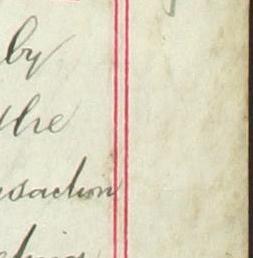 by
the
nsaction